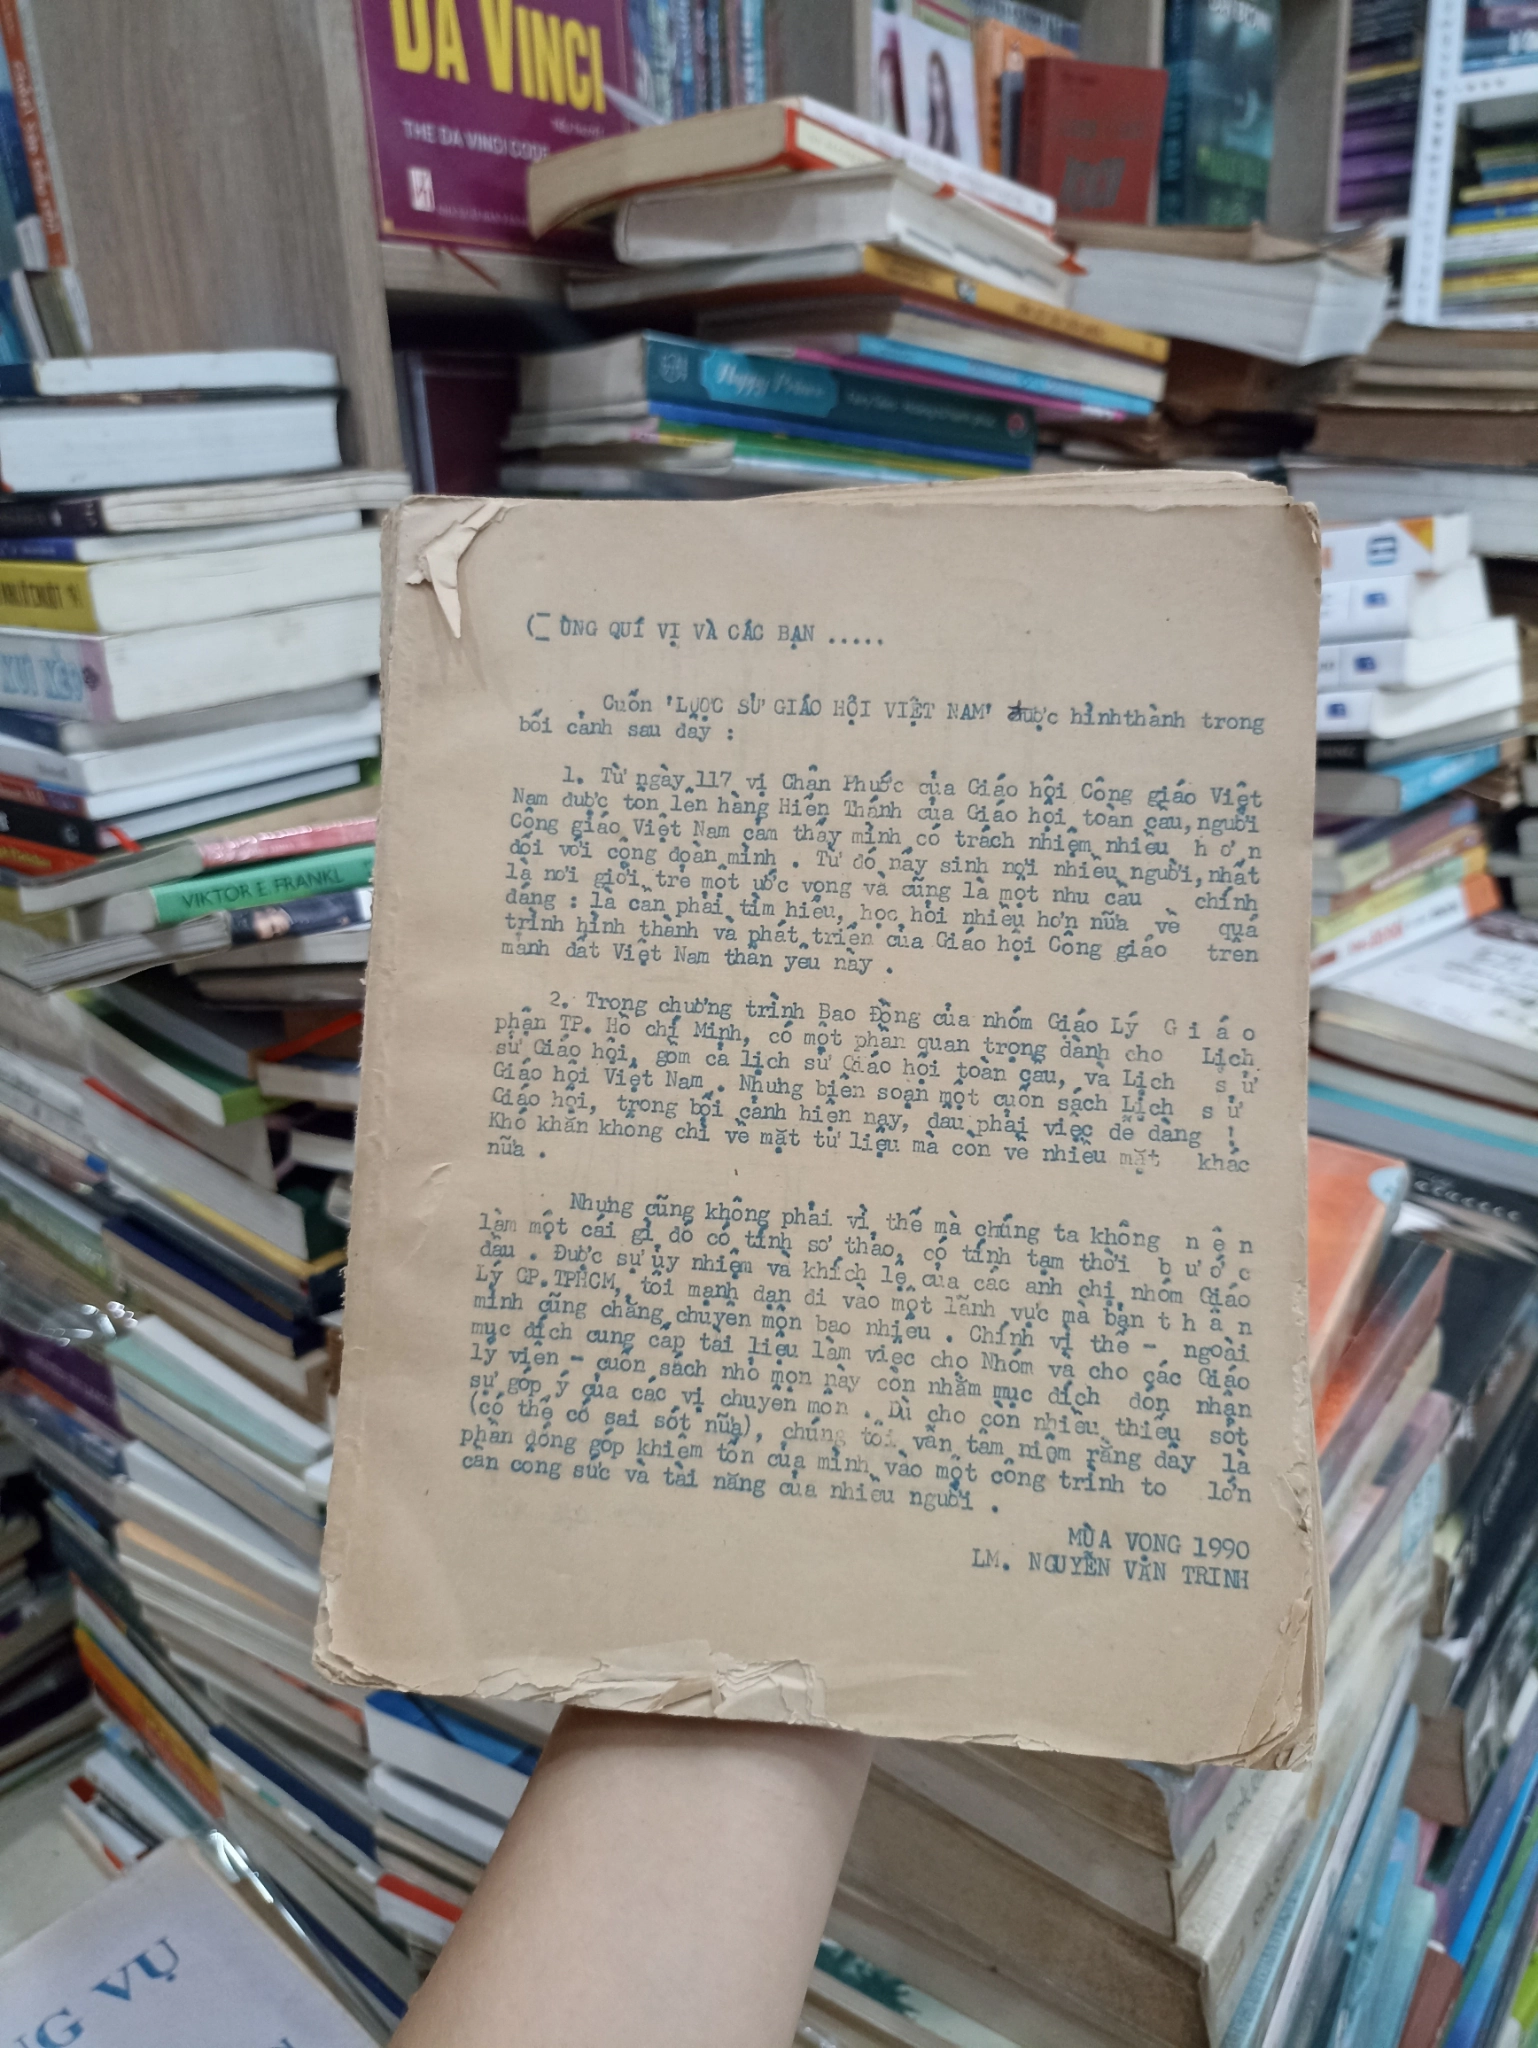 DA VINCI
THE DA VINCI CODE
Happy Prince
VIKTOR E. FRANKL
XUI XẺO
(CÙNG QUÍ VỊ VÀ CÁC BẠN .....
Cuốn 'LƯỢC SỬ GIÁO HỘI VIỆT NAM' được hìnhthành trong
bối cảnh sau đây :
1. Từ ngày 117 vị Chân Phước của Giáo hội Công giáo Việt
Nam được tôn lên hàng Hiển Thánh của Giáo hội toàn cầu, người
Công giáo Việt Nam cảm thấy mình có trách nhiệm nhiều h ơ n
đối với cộng đoàn mình . Từ đó nảy sinh nơi nhiều người, nhất
là nơi giới trẻ một ước vọng và cũng là một nhu cầu chính
đáng : là cần phải tìm hiểu, học hỏi nhiều hơn nữa về quá
trình hình thành và phát triển của Giáo hội Công giáo trên
mảnh đất Việt Nam thân yêu này .
2. Trong chương trình Bao Đồng của nhóm Giáo Lý G i á o
phận TP. Hồ chí Minh, có một phần quan trọng dành cho Lịch
sử Giáo hội, gồm cả lịch sử Giáo hội toàn cầu, và Lịch s ử
Giáo hội Việt Nam . Nhưng biên soạn một cuốn sách Lịch s ử
Giáo hội, trong bối cảnh hiện nay, đâu phải việc dễ dàng !
Khó khăn không chỉ về mặt tư liệu mà còn về nhiều mặt khác
nữa .
Nhưng cũng không phải vì thế mà chúng ta không n ê n
làm một cái gì đó có tính sơ thảo, có tính tạm thời b ư ớ c
đầu . Được sự ủy nhiệm và khích lệ của các anh chị nhóm Giáo
Lý GP. TPHCM, tôi mạnh dạn đi vào một lãnh vực mà bản t h â n
mình cũng chẳng chuyên môn bao nhiêu . Chính vì thế - ngoài
mục đích cung cấp tài liệu làm việc cho Nhóm và cho các Giáo
lý viên - cuốn sách nhỏ mọn này còn nhằm mục đích đón nhận
sự góp ý của các vị chuyên môn . Dù cho còn nhiều thiếu sót
(có thể có sai sót nữa), chúng tôi vẫn tâm niệm rằng đây là
phần đóng góp khiêm tốn của mình vào một công trình to lớn
cần công sức và tài năng của nhiều người .
MÙA VỌNG 1990
LM. NGUYỄN VĂN TRINH
NG VỤ